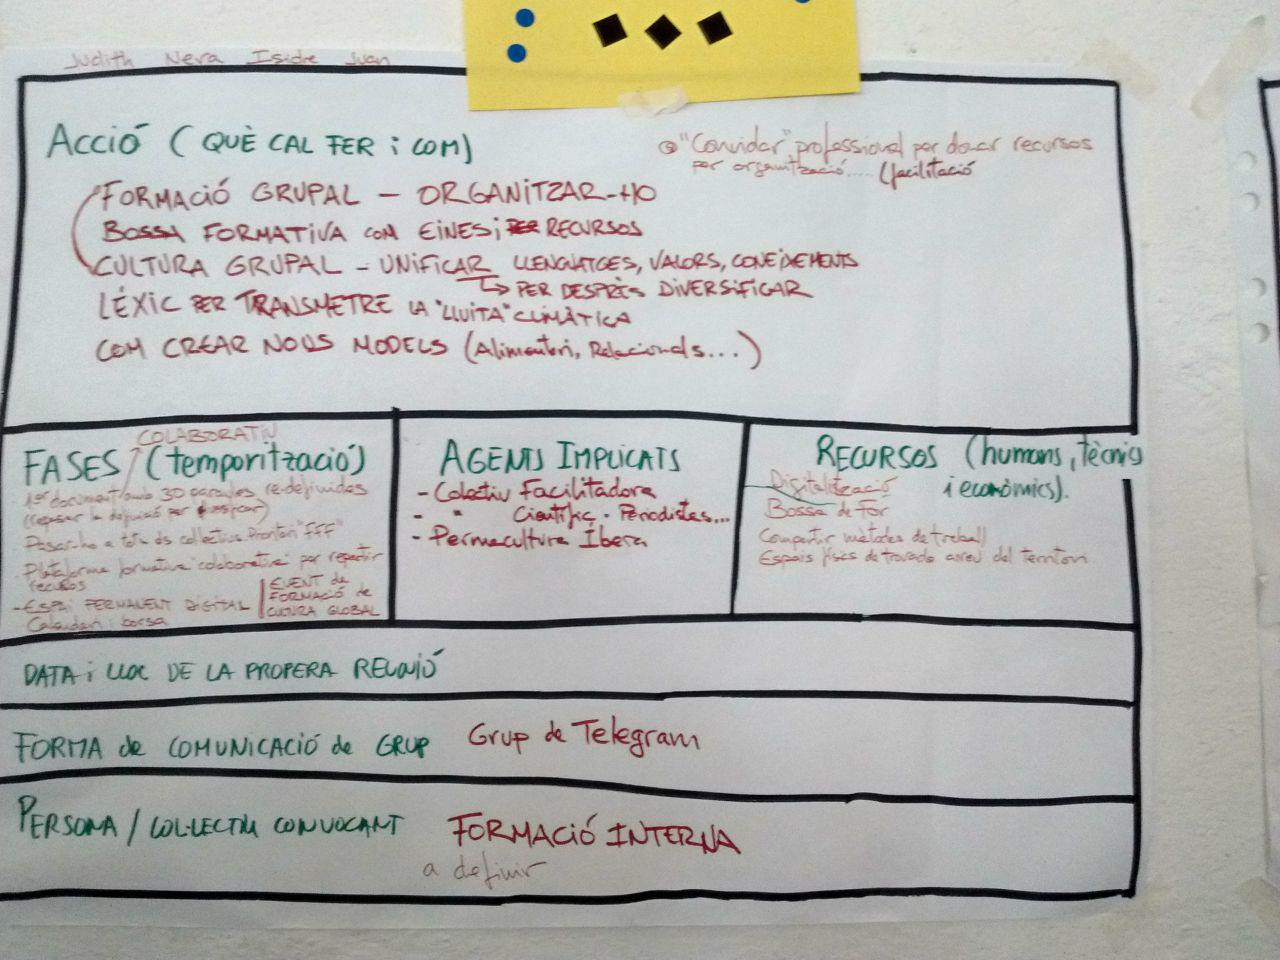 Judith Nera Isidre Juan
ACCIÓ (QUÈ CAL FER i COM)
"Convidar" professional per donar recursos
per organització.... (facilitació
FORMACIÓ GRUPAL - ORGANITZAR-HO
BOSSA FORMATIVA COM EINES i RECURSOS
CULTURA GRUPAL - UNIFICAR LLENGUATGES, VALORS, CONEIXEMENTS
↳ PER DESPRÈS DIVERSIFICAR
LÉXIC PER TRANSMETRE LA "LLUITA" CLIMÀTICA
COM CREAR NOUS MODELS (Alimentari, Relacionals...)
COLABORATIU
FASES (temporització)
- 1er document amb 30 paraules re-definides
(repensar la definició per
Passar-ho a tots els collectius "FFF"
- Plataforma formativa colaborativa per repartir
recursos
- ESPAI PERMANENT DIGITAL
Calendari i borsa
EVENT de
FORMACIÓ de
CULTURA GLOBAL
AGENTS IMPLICATS
- Colectiu Facilitadora
- " Científic - Periodistes...
- Permacultura Íbera
RECURSOS (humans, tècnics
i econòmics).
Digitalització
Bossa de for
Compartir mètodes de treball
Espais físics de trovada arreu del territori
DATA i LLOC DE LA PROPERA REUNIÓ
FORMA de COMUNICACIÓ de GRUP Grup de Telegram
PERSONA / COL·LECTIU CONVOCANT FORMACIÓ INTERNA
a definir